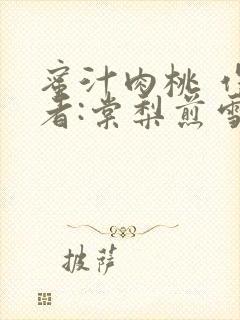 蜜汁肉桃
者:棠梨煎
披萨